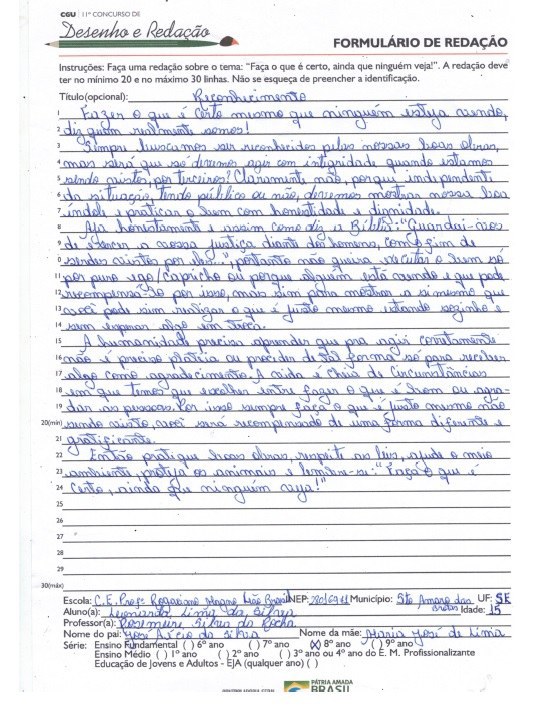 CGU | 11º CONCURSO DE
Desenho e Redação
FORMULÁRIO DE REDAÇÃO
Instruções: Faça uma redação sobre o tema: "Faça o que é certo, ainda que ninguém veja!". A redação deve
ter no mínimo 20 e no máximo 30 linhas. Não se esqueça de preencher a identificação.
Título(opcional): Reconhecimento
1 Fazer o que é certo mesmo que ninguém esteja vendo,
2 diz quem realmente somos!
3 Sempre buscamos ser reconhecidos pelas nossas boas obras,
4 mas será que só devemos agir com integridade quando estamos
5 sendo vistos, por terceiros? Claramente não, porque independente
6 da situação, tendo público ou não, devemos mostrar nossa boa
7 índole e praticar o bem com honestidade e dignidade.
8 Aja honestamente e assim como diz a Bíblia: "Guardai-vos
9 de exercer a vossa justiça diante dos homens, com o fim de
10 serdes vistos por eles...", portanto não queira executar o bem só
11 por puro ego/capricho ou porque alguém está vendo e que pode
12 recompensa-lo por isso, mas sim para mostrar a si mesmo que
13 você pode sim realizar o que é justo mesmo estando sozinho e
14 sem esperar algo em troca.
15 A humanidade precisa aprender que pra agir corretamente
16 não é preciso platéia ou proceder desta forma só para receber
17 algo como agradecimento. A vida é cheia de circunstâncias
18 em que temos que escolher entre fazer o que é bom ou agra-
19 dar as pessoas. Por isso sempre faça o que é justo mesmo não
20(min) sendo visto, você será recompensado de uma forma diferente e
21 gratificante.
22 Então pratique boas obras, respeite as leis, ajude o meio
23 ambiente, proteja os animais e lembre-se: "Faça o que é
24 certo, ainda que ninguém veja!"
25
26
27
28
29
30(máx)
Escola: C.E. Profº Rogaciano Magno Leão Brasil INEP: Município: Sto Amaro das Brotas UF: SE
Aluno(a): Lima da Silva Idade: 15
Professor(a): Rosemeire Silva da Rocha
Nome do pai: José da Silva Nome da mãe: Maria José de Lima
Série: Ensino Fundamental ( ) 6º ano ( ) 7º ano (X) 8º ano ( ) 9º ano
Ensino Médio ( ) 1º ano ( ) 2º ano ( ) 3º ano ou 4º ano do E. M. Profissionalizante
Educação de Jovens e Adultos - EJA (qualquer ano) ( )
PÁTRIA AMADA
BRASIL